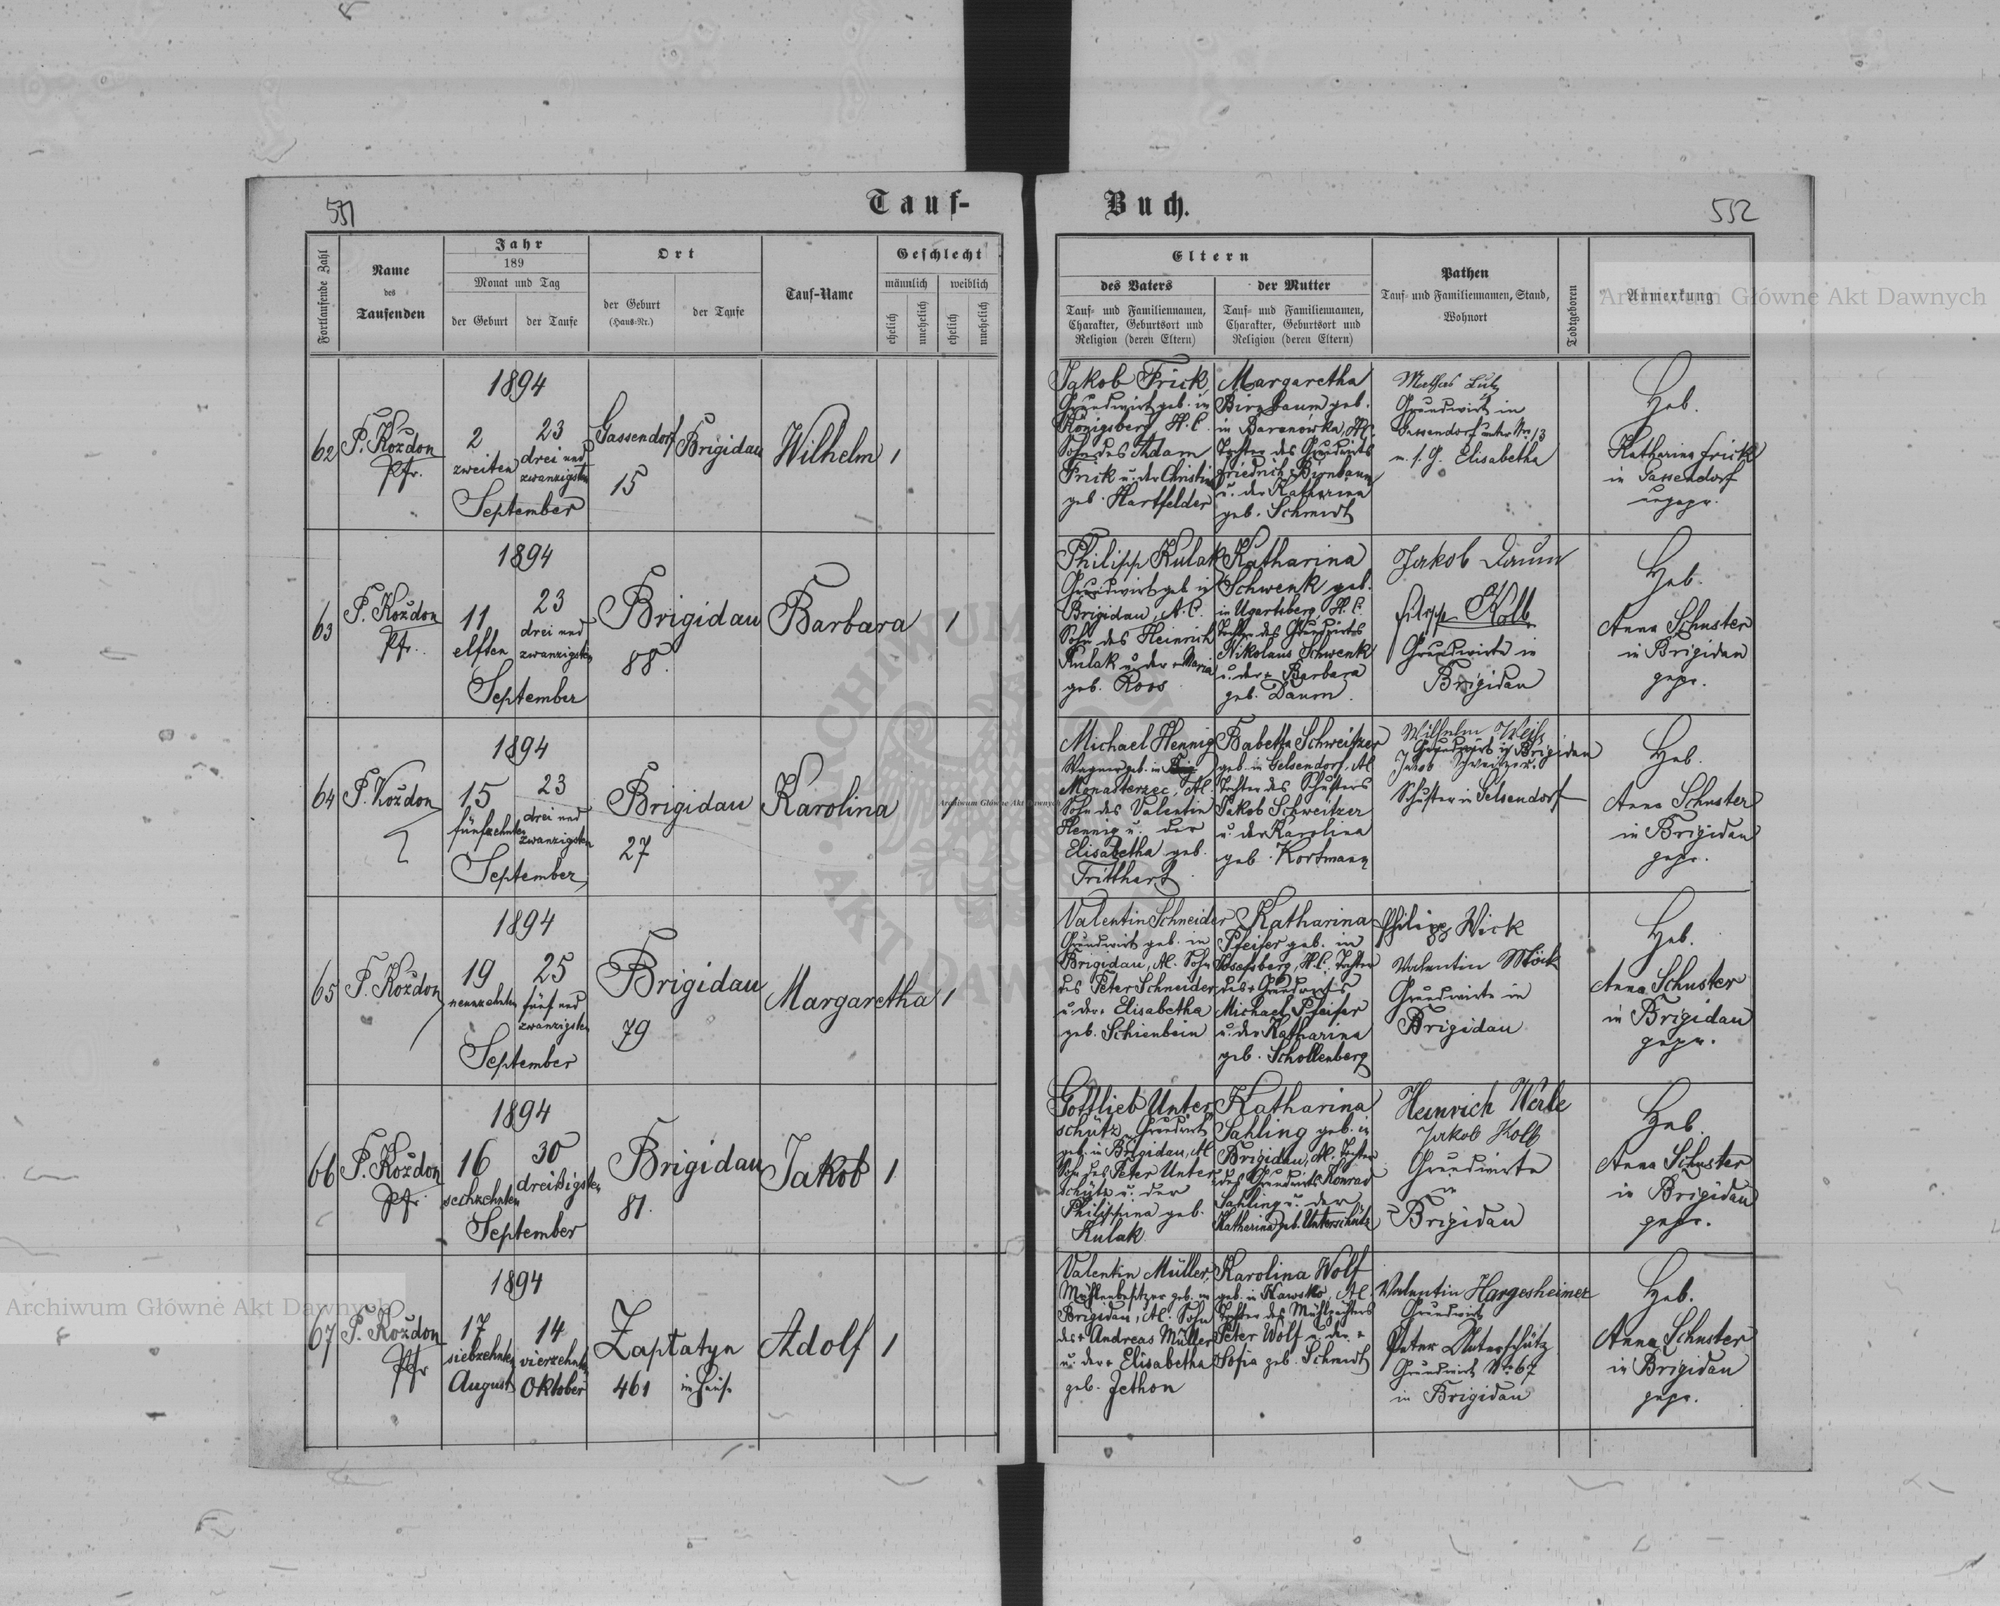 551
Tauf-
Buch.
552
Fortlaufende Zahl
Name
des
Taufenden
Jahr
189
Monat und Tag
der Geburt
der Taufe
Ort
der Geburt
(Haus-Nr.)
der Taufe
Tauf-Name
Geschlecht
männlich
weiblich
ehelich
unehelich
ehelich
unehelich
Eltern
des Vaters
Tauf- und Familiennamen,
Charakter, Geburtsort und
Religion (deren Eltern)
der Mutter
Tauf- und Familiennamen,
Charakter, Geburtsort und
Religion (deren Eltern)
Pathen
Tauf- und Familiennamen, Stand,
Wohnort
Todtgeboren
Anmerkung
Archiwum Główne Akt Dawnych
62
P. Koždon
Pfr.
1894
2
zweiten
23
drei und
zwanzigsten
September
Gassendorf
15
Brigidau
Wilhelm
1
Jakob Frick
Grundwirt geb. in
Königsberg, H. C.
Sohn des Adam
Frick u. der Christina
geb. Hartfelder
Margaretha
Birnbaum geb.
in Baranowka, AC.
Tochter des Grundwirts
Friedrich Birnbaum
u. der Katharina
geb. Schmidt
Mathias Lutz
Grundwirt in
Gassendorf unter Nro 13
m. s. G. Elisabetha
Heb.
Katharina Frick
in Gassendorf
ungepr.
63
P. Koždon
Pfr.
1894
11
elften
23
drei und
zwanzigsten
September
Brigidau
88.
Barbara
1
Philipp Kulak
Grundwirt geb. in
Brigidau, A. C.
Sohn des Heinrich
Kulak u. der + Maria
geb. Roos
Katharina
Schwenk geb.
in Ugartsberg, H. C.
Tochter des Grundwirts
Nikolaus Schwenk
u. der + Barbara
geb. Daum.
Jakob Daum
Filipp Kolb
Grundwirte in
Brigidau
Heb.
Anna Schuster
in Brigidau
gepr.
64
P. Koždon
1894
15
fünfzehnten
23
drei und
zwanzigsten
September
Brigidau
27
Karolina
1
Michael Hennig
Wagner geb. in
Monasterzec, AC.
Sohn des Valentin
Hennig u. der
Elisabetha geb.
Tritthart
Babetta Schweitzer
geb. in Gelsendorf, AC
Tochter des Schusters
Jakob Schweitzer
u. der Karolina
geb. Kortmann
Wilhelm
Grundwirt in Brigidau
Jakob Schweitzer
Schuster in Gelsendorf
Heb.
Anna Schuster
in Brigidau
gepr.
65
P. Koždon
1894
19
neunzehnten
25
fünf und
zwanzigsten
September
Brigidau
79
Margaretha
1
Valentin Schneider
Grundwirt geb. in
Brigidau, AC. Sohn
des Peter Schneider
u. der + Elisabetha
geb. Schienbein
Katharina
Pfeifer geb. in
Josefsberg, H. C. Tochter
des + Grundwirts
Michael Pfeifer
u. der Katharina
geb. Schollenberg
Philipp Wick
Valentin Möck
Grundwirte in
Brigidau
Heb.
Anna Schuster
in Brigidau
gepr.
66
P. Koždon
Pfr.
1894
16
sechzehnten
30
dreißigsten
September
Brigidau
81.
Jakob
1
Gottlieb Unter
schütz Grundwirt
geb. in Brigidau, AC
Sohn des Peter Unter
schütz u. der
Philippina geb.
Kulak
Katharina
Sahling geb. in
Brigidau, AC. Tochter
des Grundwirts Konrad
Sahling u. der
Katharina geb. Unterschütz
Heinrich Werle
Jakob Kolb
Grundwirte
in
Brigidau
Heb.
Anna Schuster
in Brigidau
gepr.
67
P. Koždon
Pfr
1894
17
siebzehnten
August
14
vierzehnten
Oktober
Zaptatyn
461
im Hause
Adolf
1
Valentin Müller,
Mühlenbesitzer geb. in
Brigidau, AC. Sohn
des + Andreas Müller
u. der + Elisabetha
geb. Jethon
Karolina Wolf
geb. in Kawsko, AC
Tochter des Mühlpächters
Peter Wolf u. der +
Sofia geb. Schmidt
Valentin Hargesheimer
Grundwirt
Peter Unterschütz
Grundwirt Nro 67
in Brigidau
Heb.
Anna Schuster
in Brigidau
gepr.
Archiwum Główne Akt Dawnych
Archiwum Główne Akt Dawnych